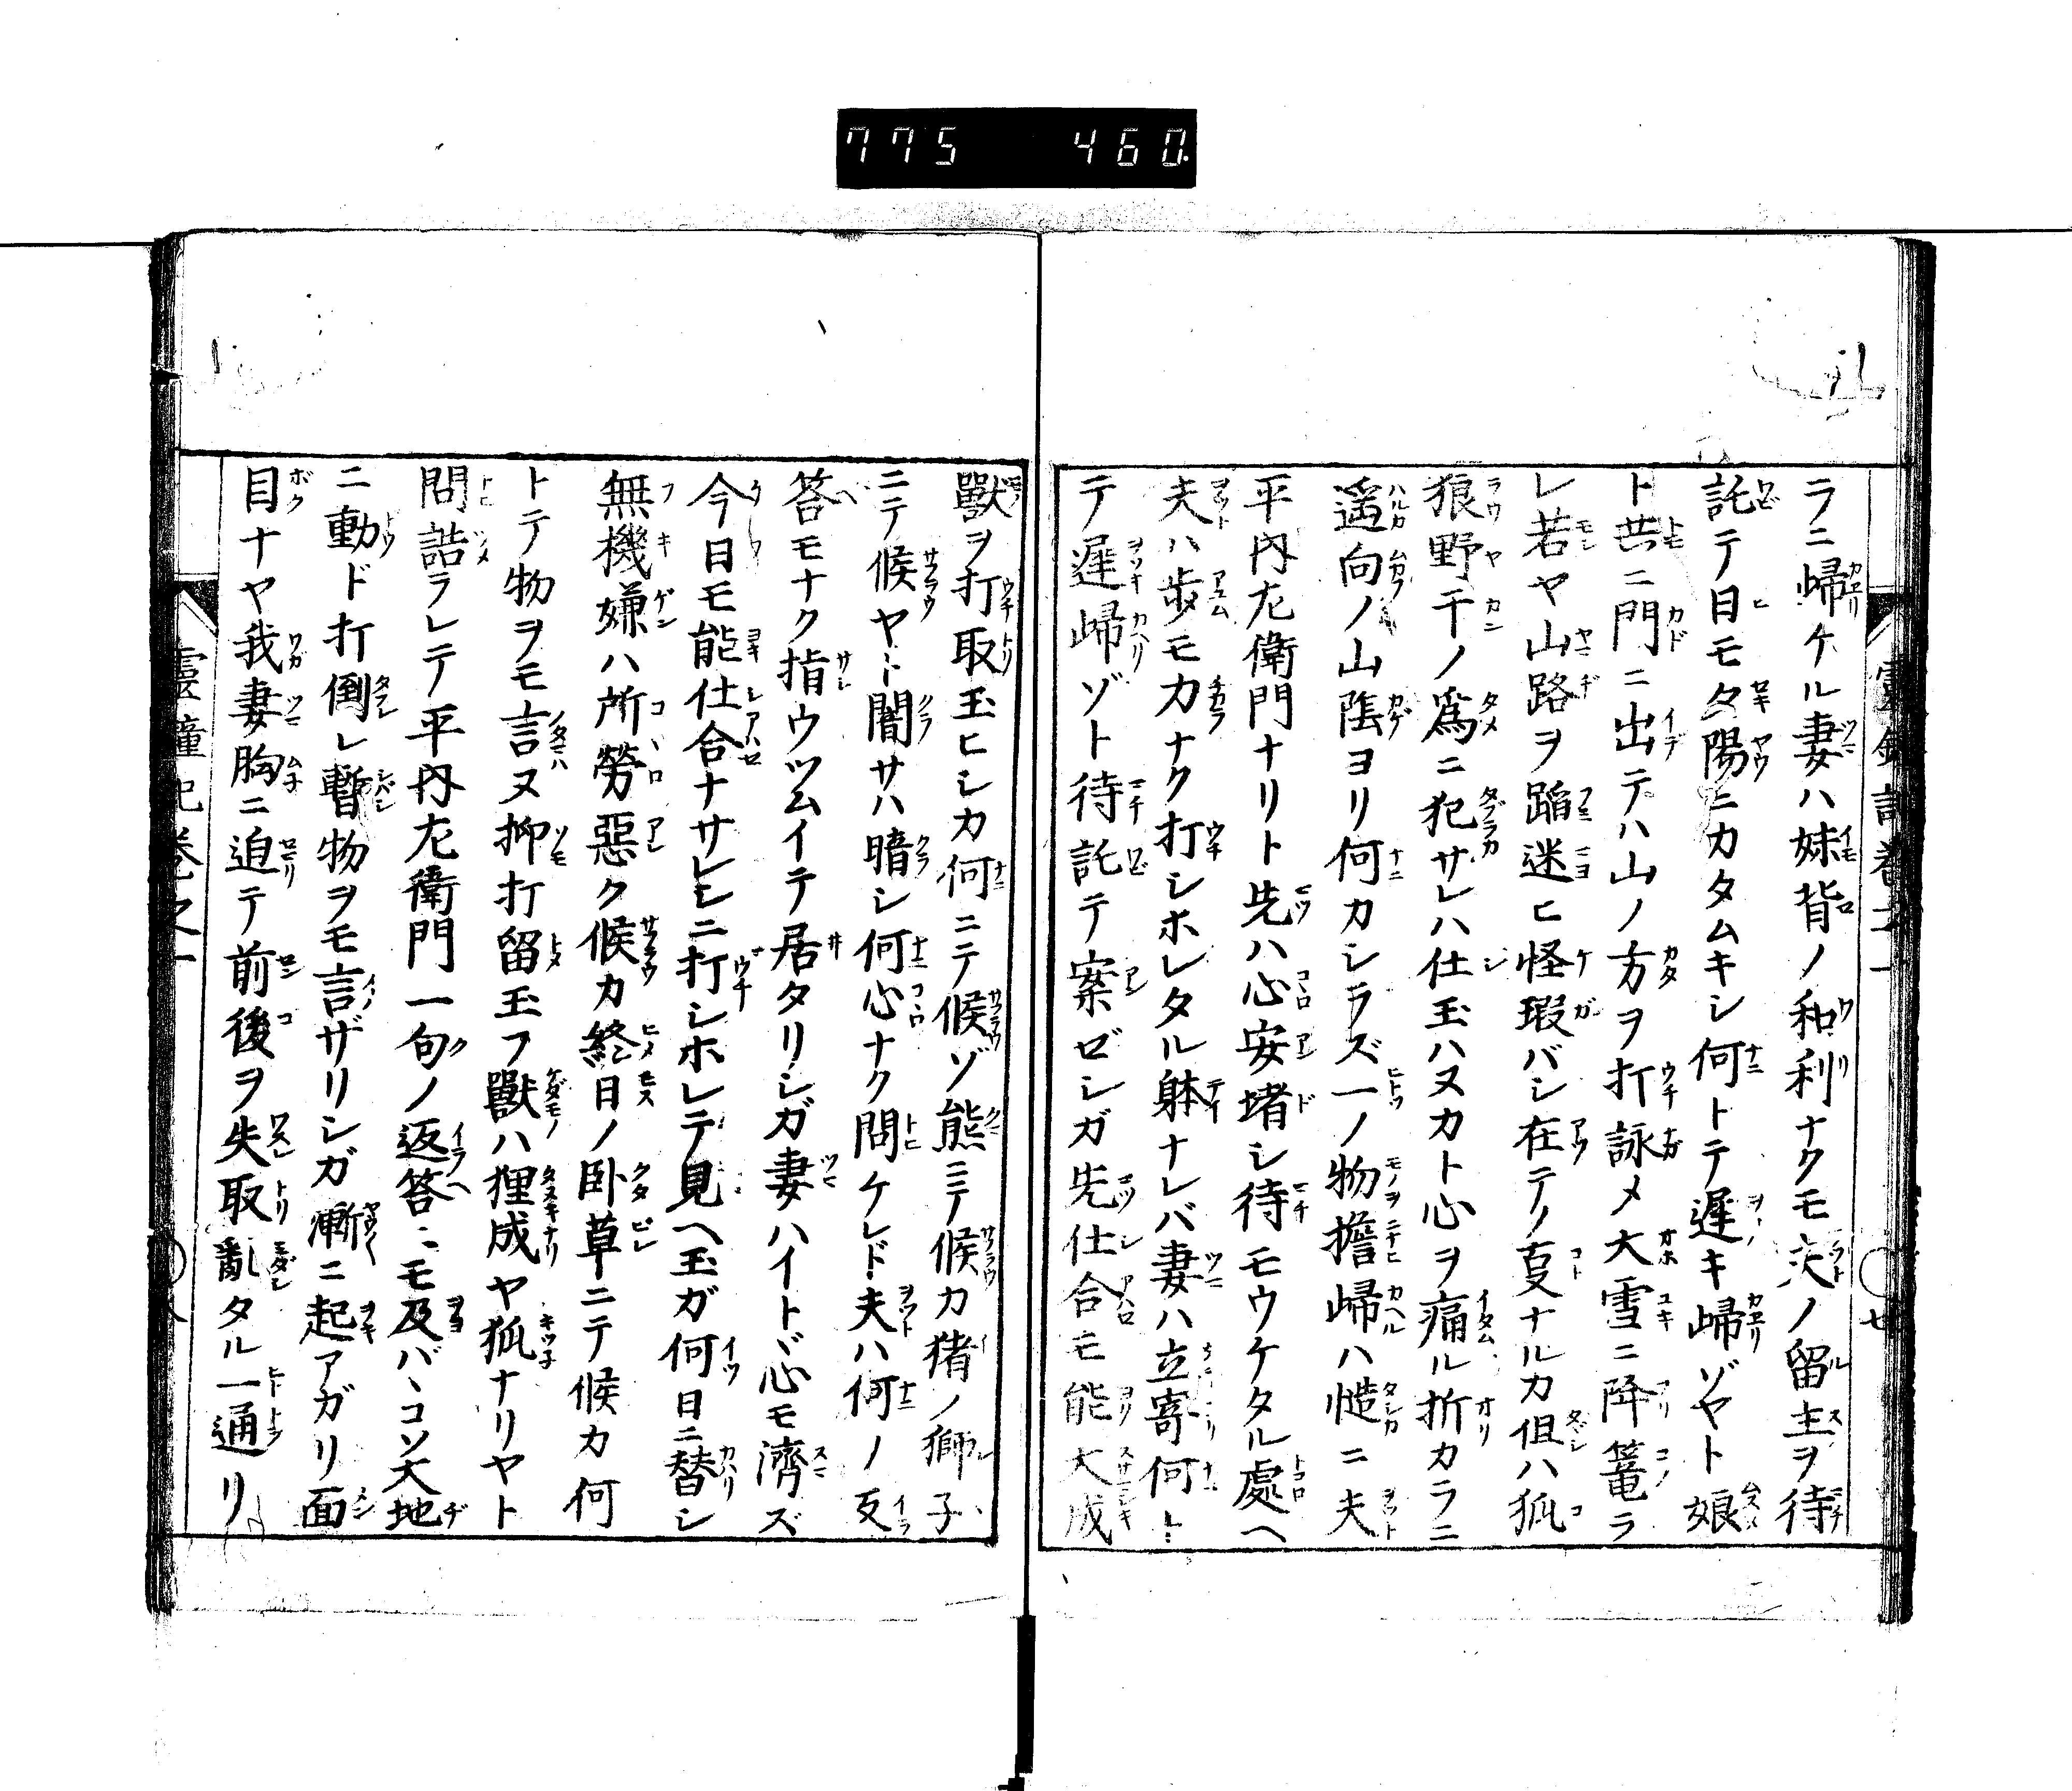 775 460
ラニ歸ケル妻ハ妹背ノ和利ナクモ夫ノ留主ヲ待
託テ日モ夕陽ニカタムキシ何トテ遲キ歸ゾヤト娘
ト共ニ門ニ出テハ山ノ方ヲ打詠メ大雪ニ降篭ラ
レ若ヤ山路ヲ蹈迷ヒ怪瑕バシ在テノ㕝ナルカ但ハ狐
狼野干ノ爲ニ犯サレハ仕玉ハヌカト心ヲ痛ル折カラニ
遥向ノ山陰ヨリ何カシラズ一ノ物擔歸ハ慥ニ夫
平内左衛門ナリト先ハ心安堵シ待モウケタル處ヘ
夫ハ歩モ力ナク打シホレタル躰ナレバ妻ハ立寄何トヽ
テ遲歸ゾト待託テ案ゼシガ先仕合モ能大成
獸ヲ打取玉ヒシカ何ニテ候ゾ熊ニテ候カ猪ノ獅子
ニテ候ヤト闇サハ暗シ何心ナク問ケレド夫ハ何ノ反
答モナク指ウツムイテ居タリシガ妻ハイトヾ心モ濟ズ
今日モ能仕合ナサレシニ打シホレテ見ヘ玉ガ何日ニ替シ
無機嫌ハ所勞惡ク候カ終日ノ卧草ニテ候カ何
トテ物ヲモ言ヌ抑打留玉フ獸ハ狸成ヤ狐ナリヤト
問詰ラレテ平内左衛門一句ノ返答ニモ及バヽコソ大地
ニ動ド打倒レ暫物ヲモ言ザリシガ漸ニ起アガリ面
目ナヤ我妻胸ニ迫テ前後ヲ失取亂タル一通リ